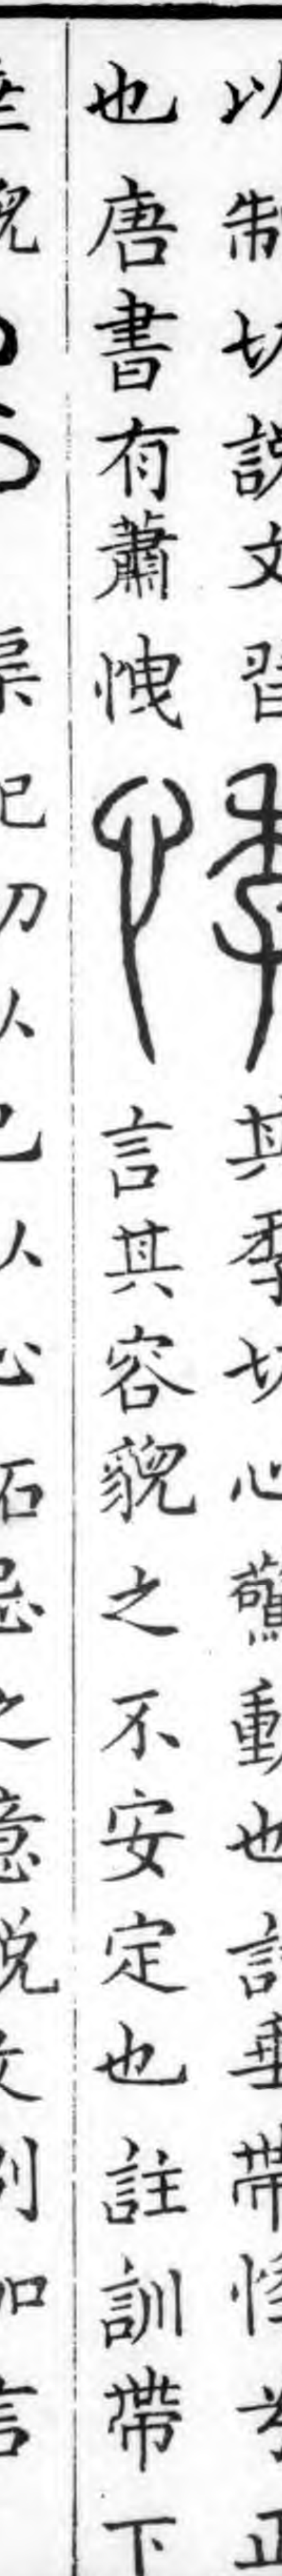 以制切説文習 其季切心驚動也詩垂帶悸兮正
也唐書有蕭怈 言其容貌之不安定也註訓帶下
渠記切从己从心 忌之意説文別加言